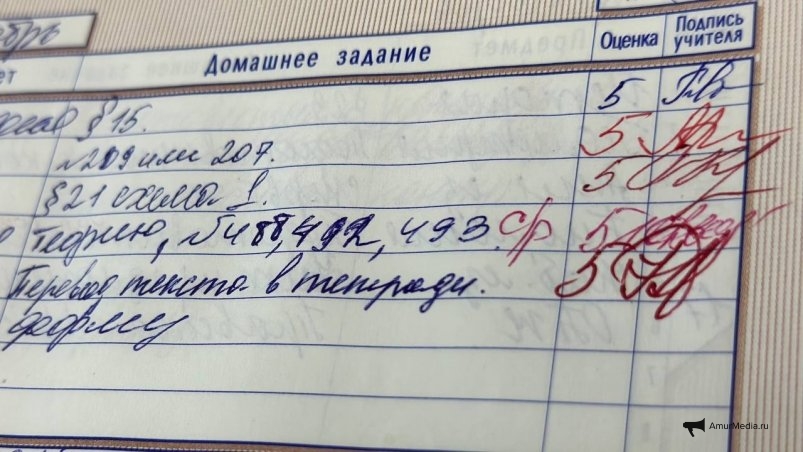 Домашнее задание Оценка Подпись учителя
§ 15. 5
№ 209 или 207. 5
§ 21 схема 1. 5
теорию, № 488, 492, 493. с/р 5
Перевод текста в тетради. 5
форму
AmurMedia.ru